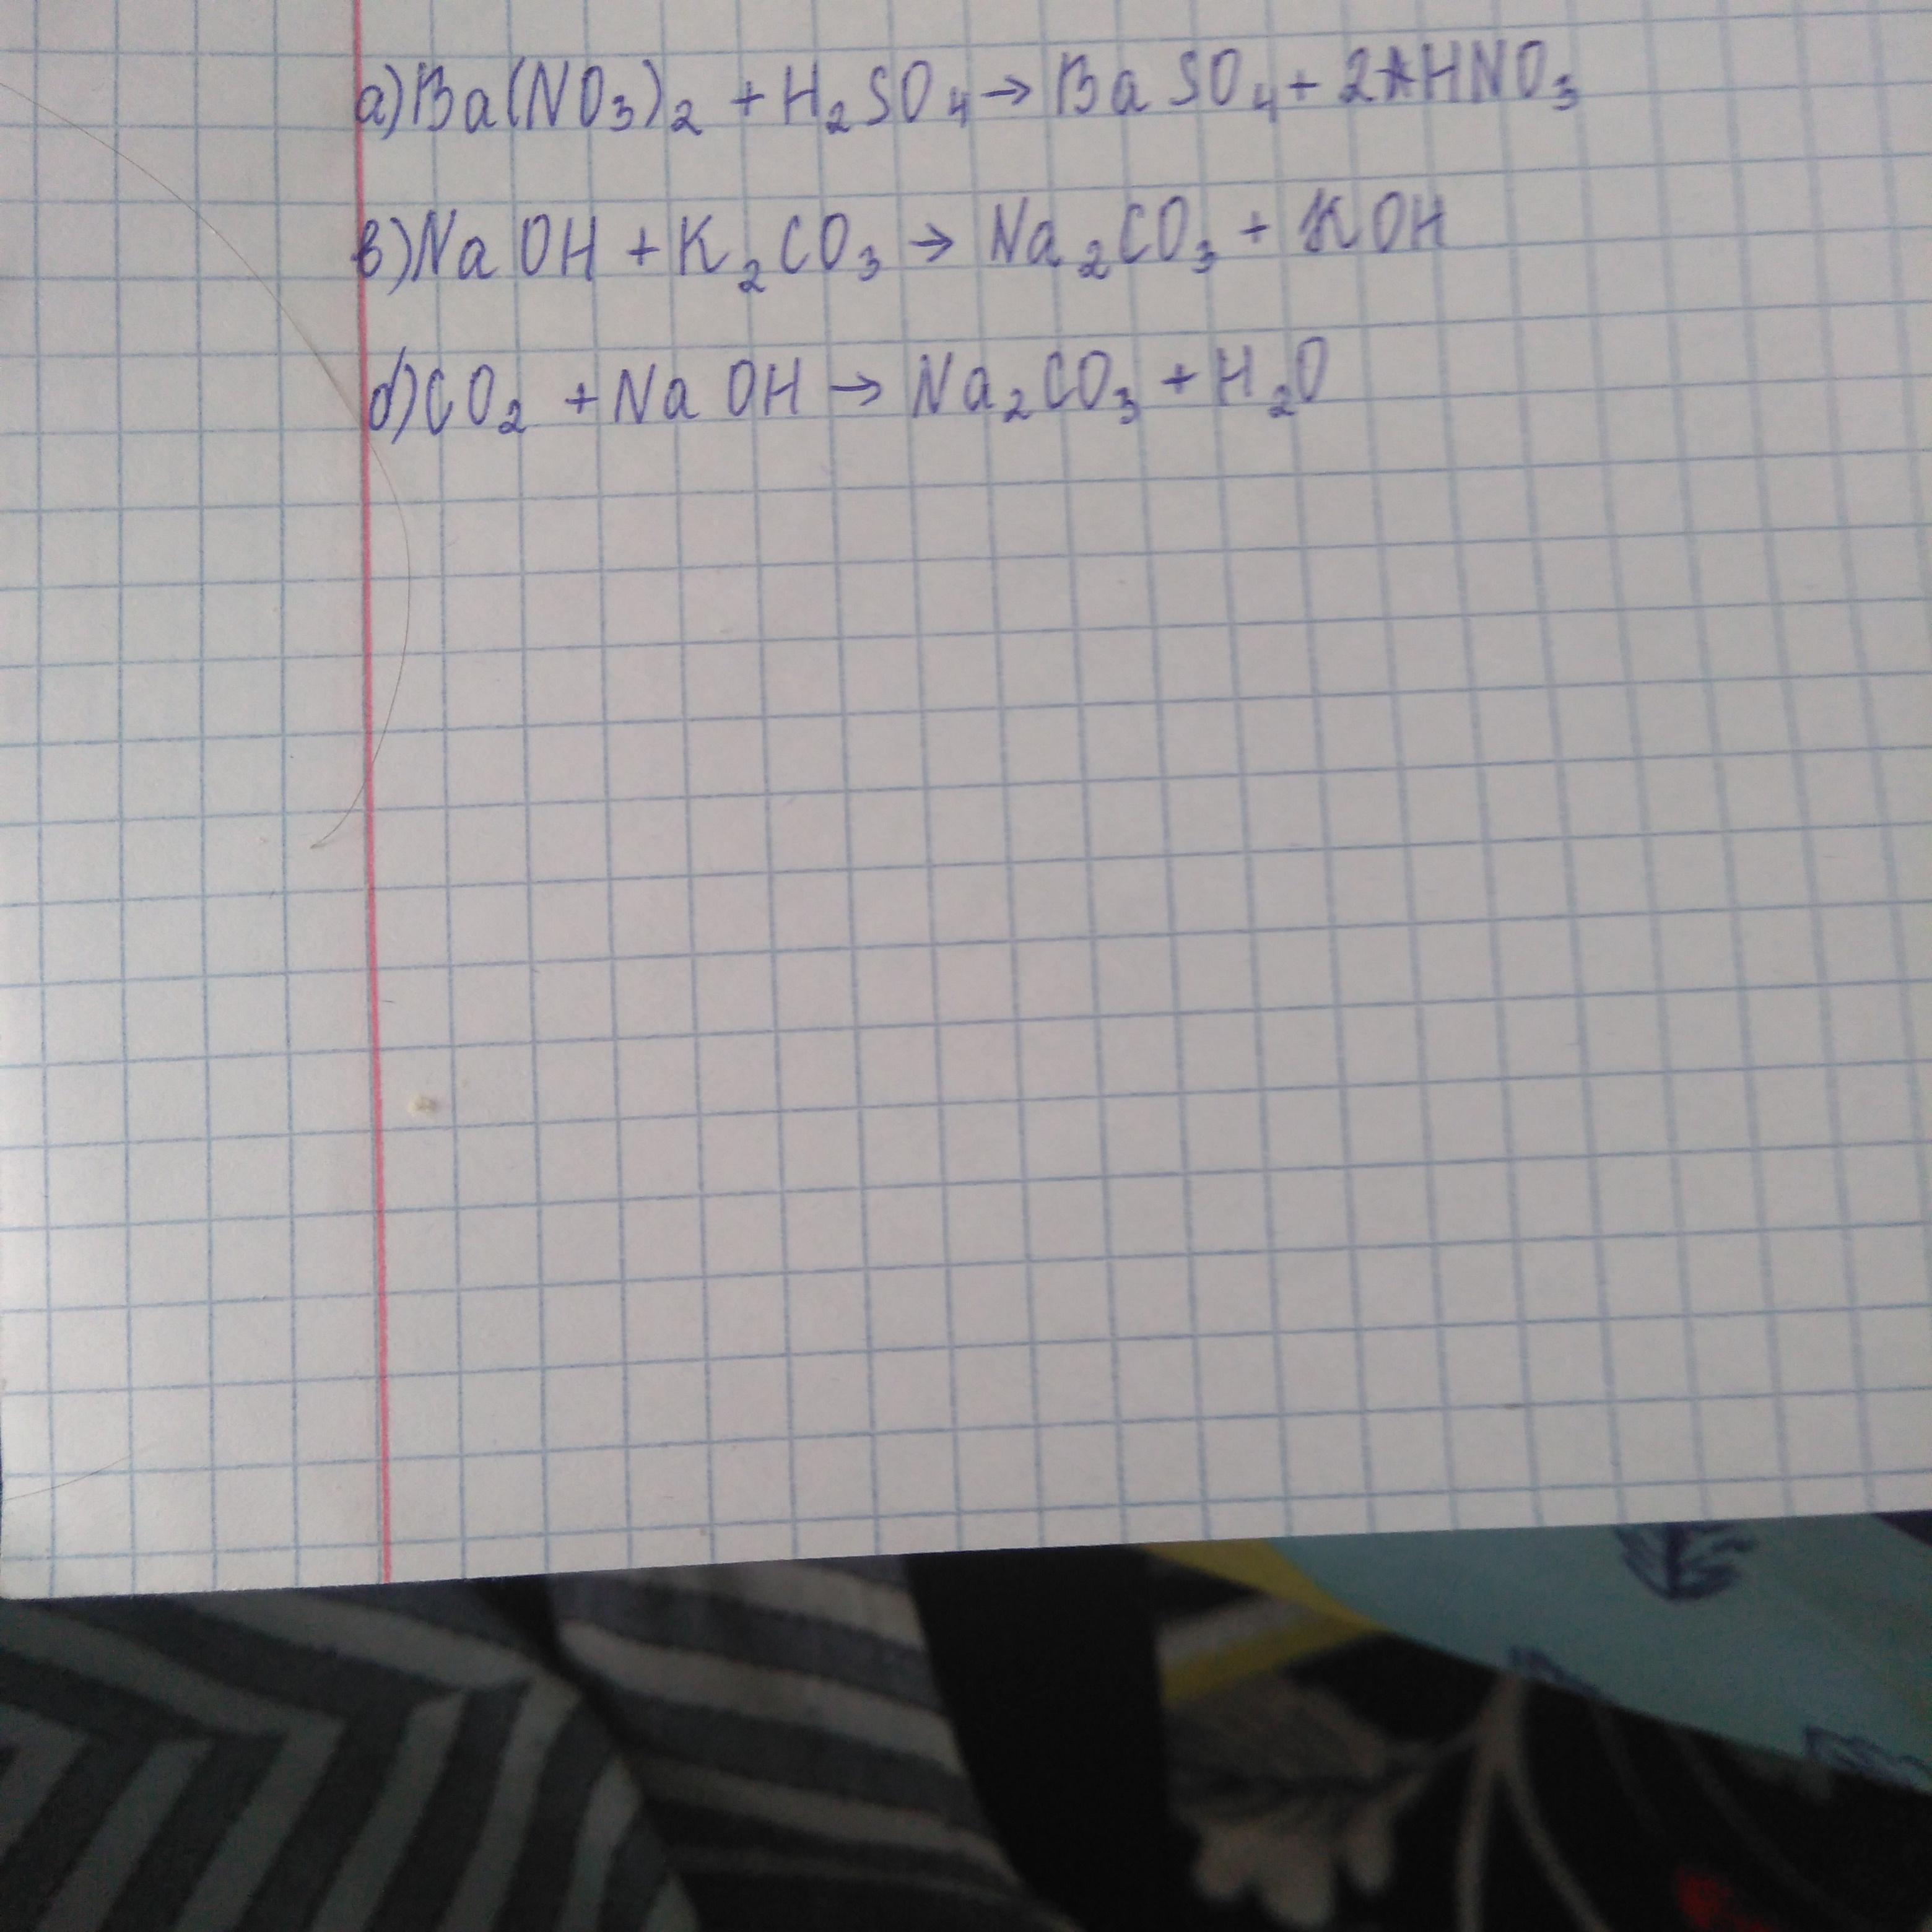 a) Ba(NO₃)₂ + H₂SO₄ → BaSO₄ + 2HNO₃
в) NaOH + K₂CO₃ → Na₂CO₃ + KOH
d) CO₂ + NaOH → Na₂CO₃ + H₂O